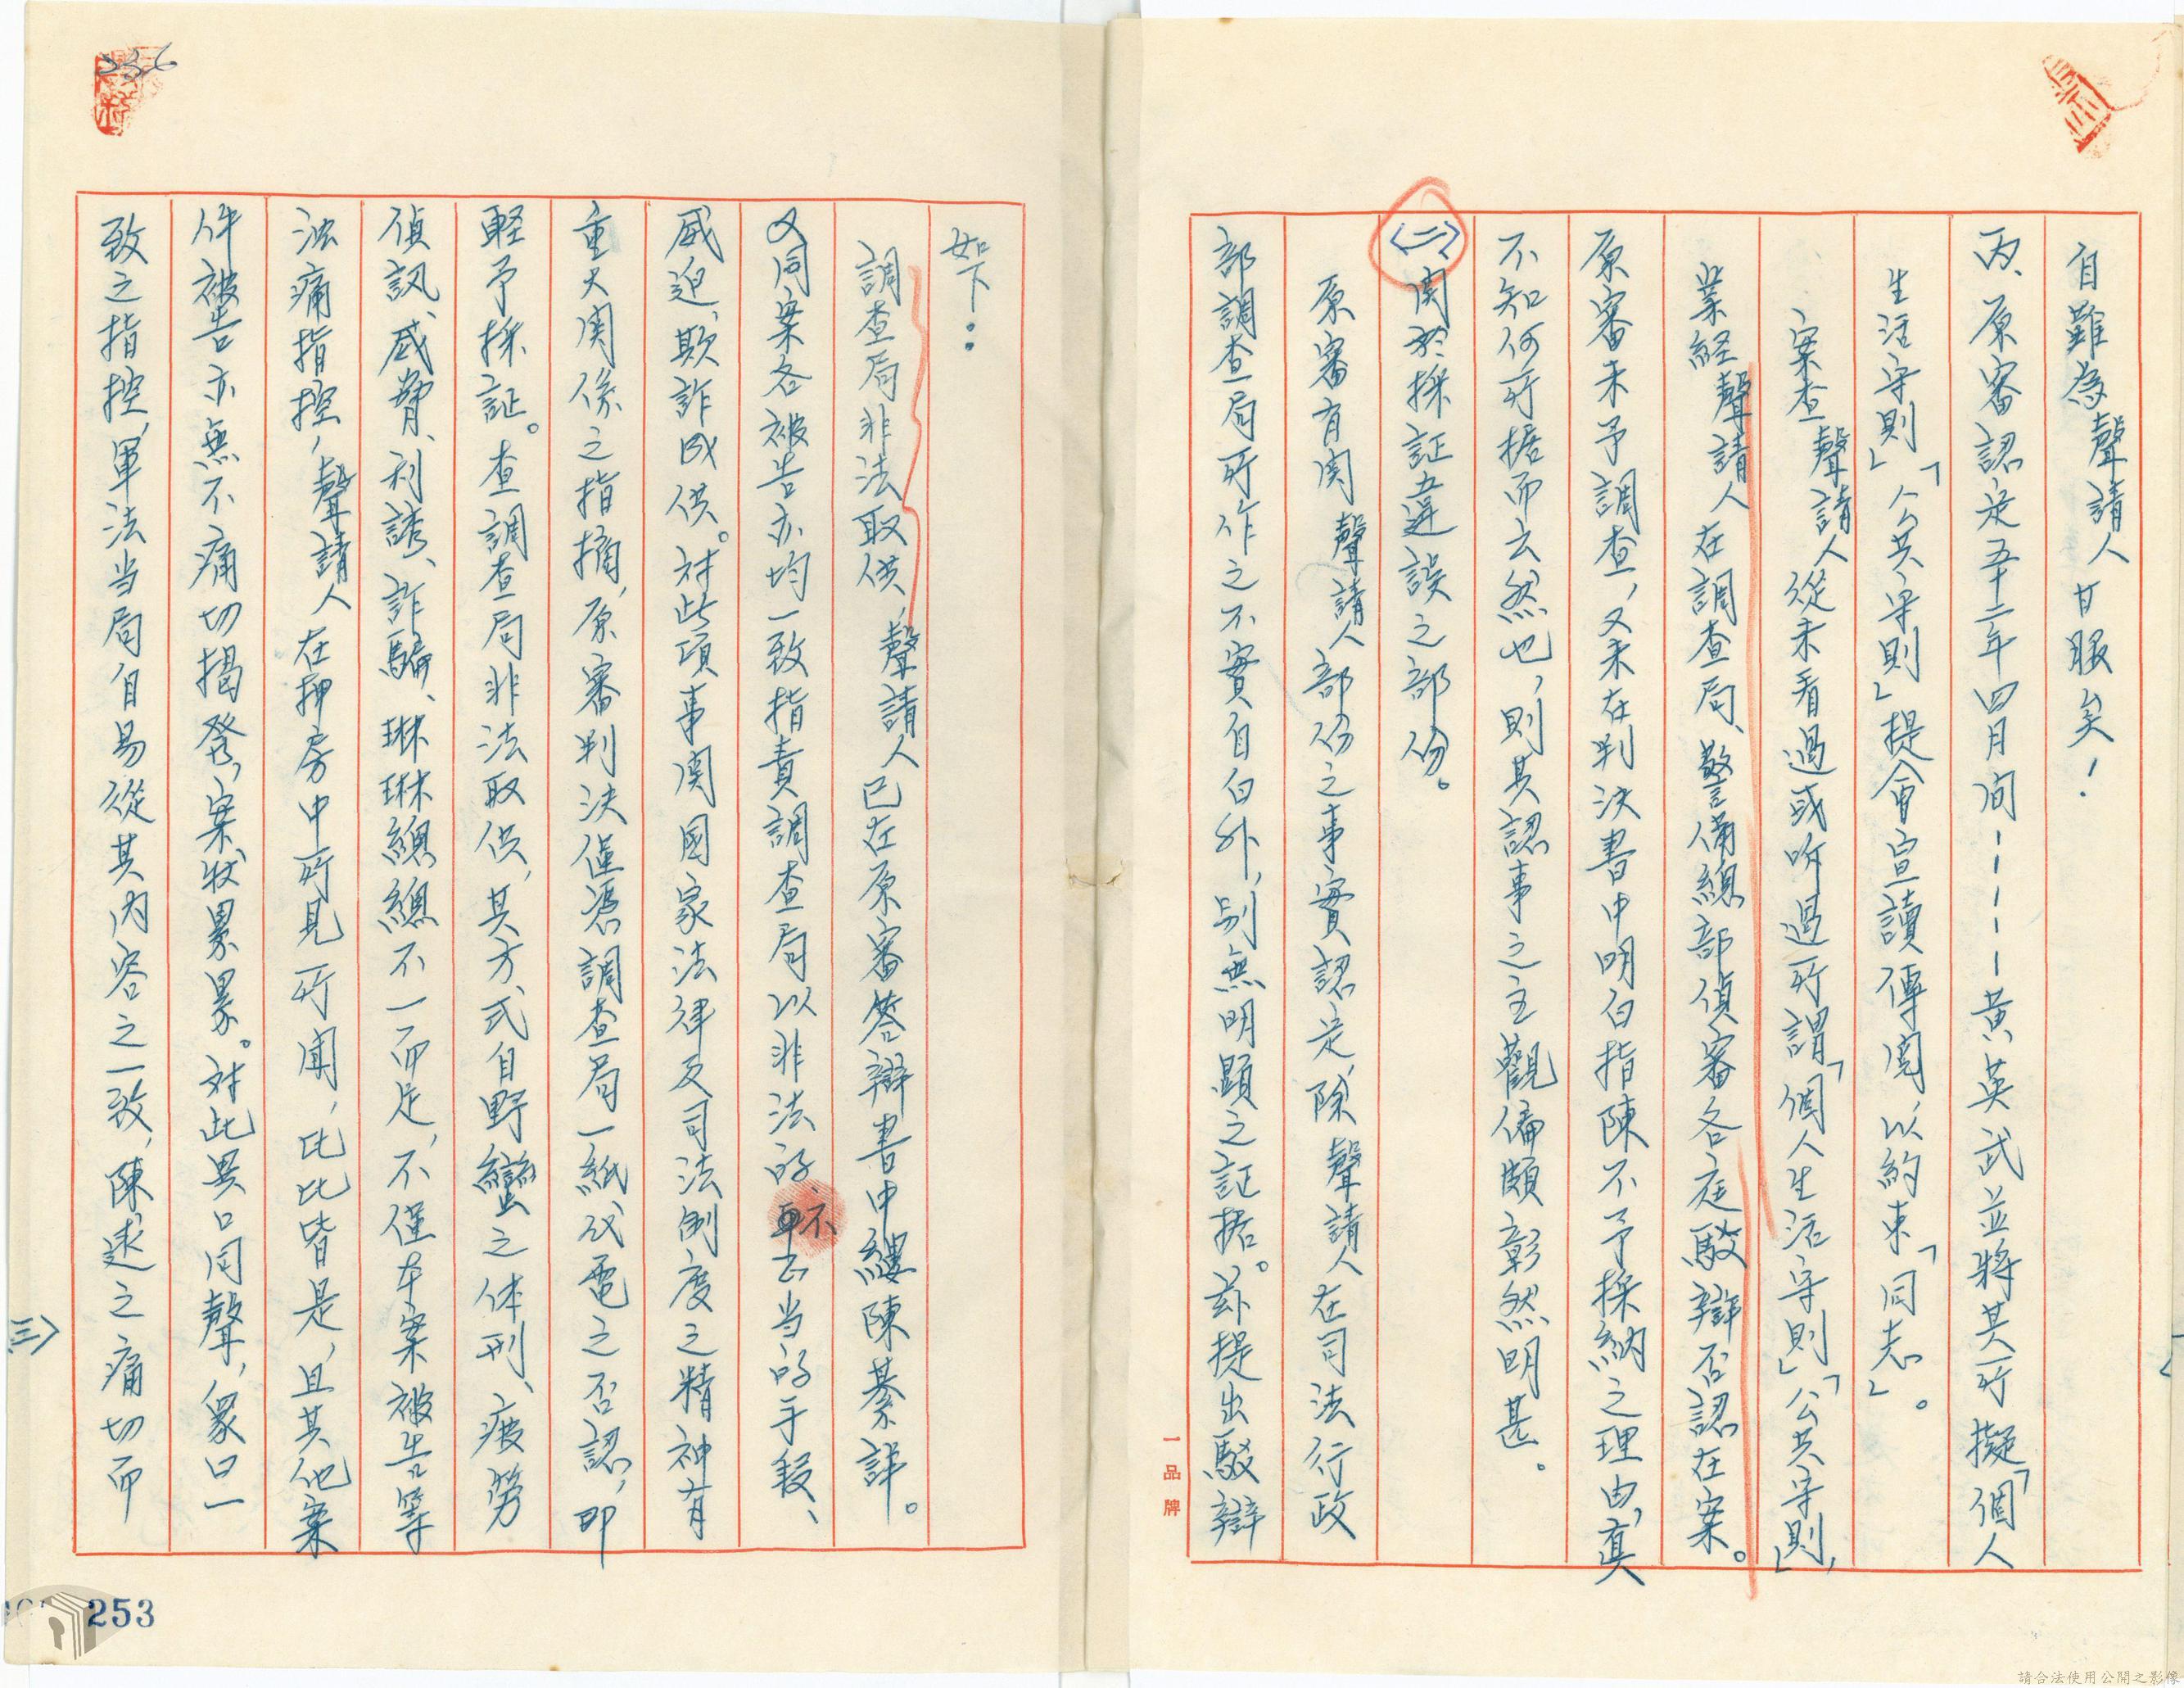 自難為聲請人甘服矣！
丙、原審認定五十二年四月间－－－－－黄英武並將其所擬「個人
生活守則」「公共守則」提會宣讀傳閱，以約束「同志」。
案查聲請人從未看過或听過所謂「個人生活守則」「公共守則」，
業経聲請人在調查局、警俻總部偵審各庭駁辯否認在案。
原審未予調查，又未在判決書中明白指陳不予採納之理由，真
不知何所据而云然也，則其認事之主觀偏頗彰然明甚。
〈二〉関於採証五違誤之部份。
原審有関聲請人部份之事實認定，除聲請人在司法行政
部調查局所作之不實自白外，別無明顯之証据。茲提出駁辯
一品牌
如下：
調查局非法取供，聲請人已在原審答辯書中縷陳綦詳。
又同案各被告亦均一致指責調查局以非法的、不正当的手段、
威迫、欺詐成供。对此項事関国家法律及司法制度之精神有
重大関係之指摘，原審判決僅憑調查局一紙代電之否認，即
軽予採証。查調查局非法取供，其方式自野蠻之体刑、疲勞
偵訊、威脅、利誘、詐騙、琳琳總總不一而足，不僅本案被告等
沈痛指控，聲請人在押房中所見所闻，比比皆是，且其他案
件被告亦無不痛切揭發，案狀累累。对此異口同聲，眾口一
致之指控，軍法当局自易從其內容之一致，陳述之痛切而
〈三〉
253
請合法使用公開之影像